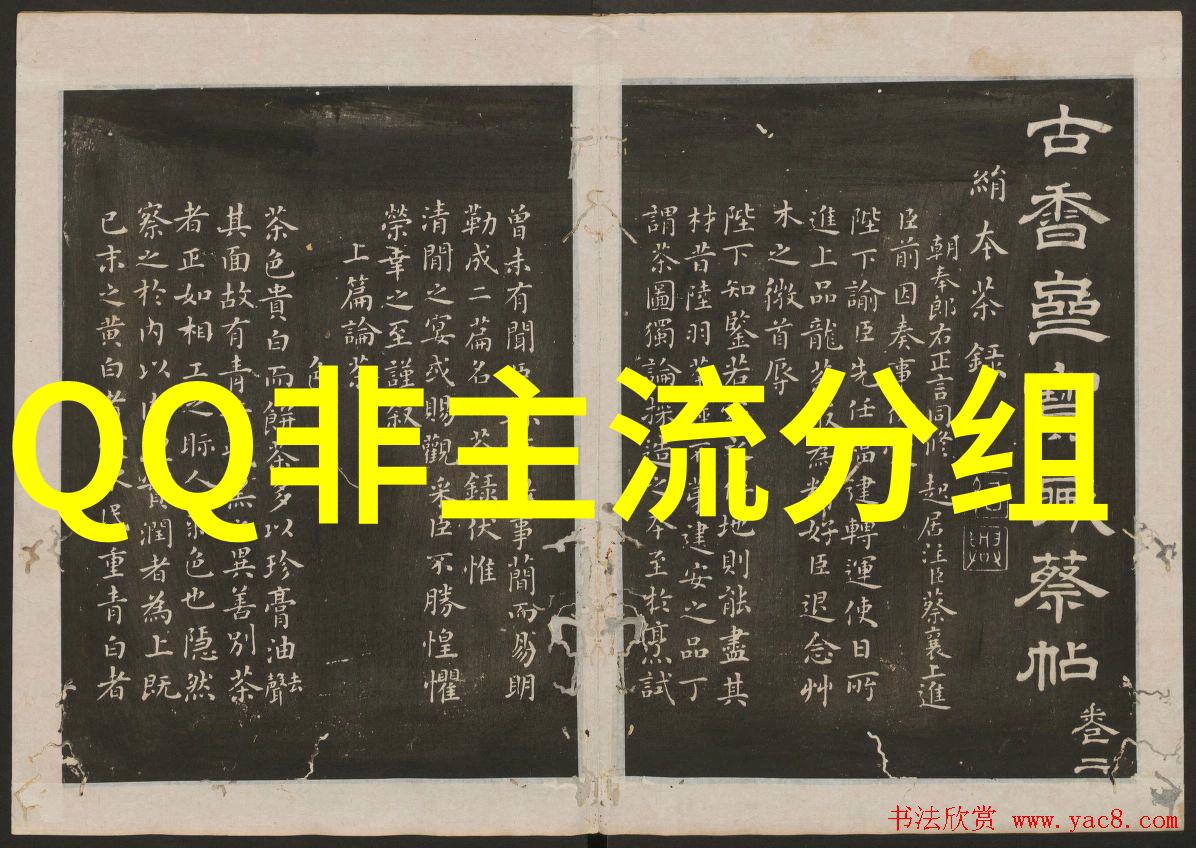 古香齋寶藏蔡帖
卷二
絹本茶録
朝奉郎右正言同修起居注臣蔡襄上進
臣前因奏事
陛下諭臣先任福建轉運使日所
進上品龍茶最為精好臣退念艸
木之微首辱
陛下知鑒若處之得地則能盡其
材昔陸羽茶經不第建安之品丁
謂茶圖獨論採造之本至於烹試
曾未有聞事簡而易明
勒成二篇名曰茶録伏惟
清閒之宴或賜觀采臣不勝惶懼
榮幸之至謹叙
上篇論茶
色
茶色貴白而餅茶多以珍膏油去聲
其面故有青異善別茶
者正如相工之眎人氣色也隱然
察之於內以實潤者為上既
已末之黃白者重青白者
QQ非主流分组
书法欣赏 www.yac8.com